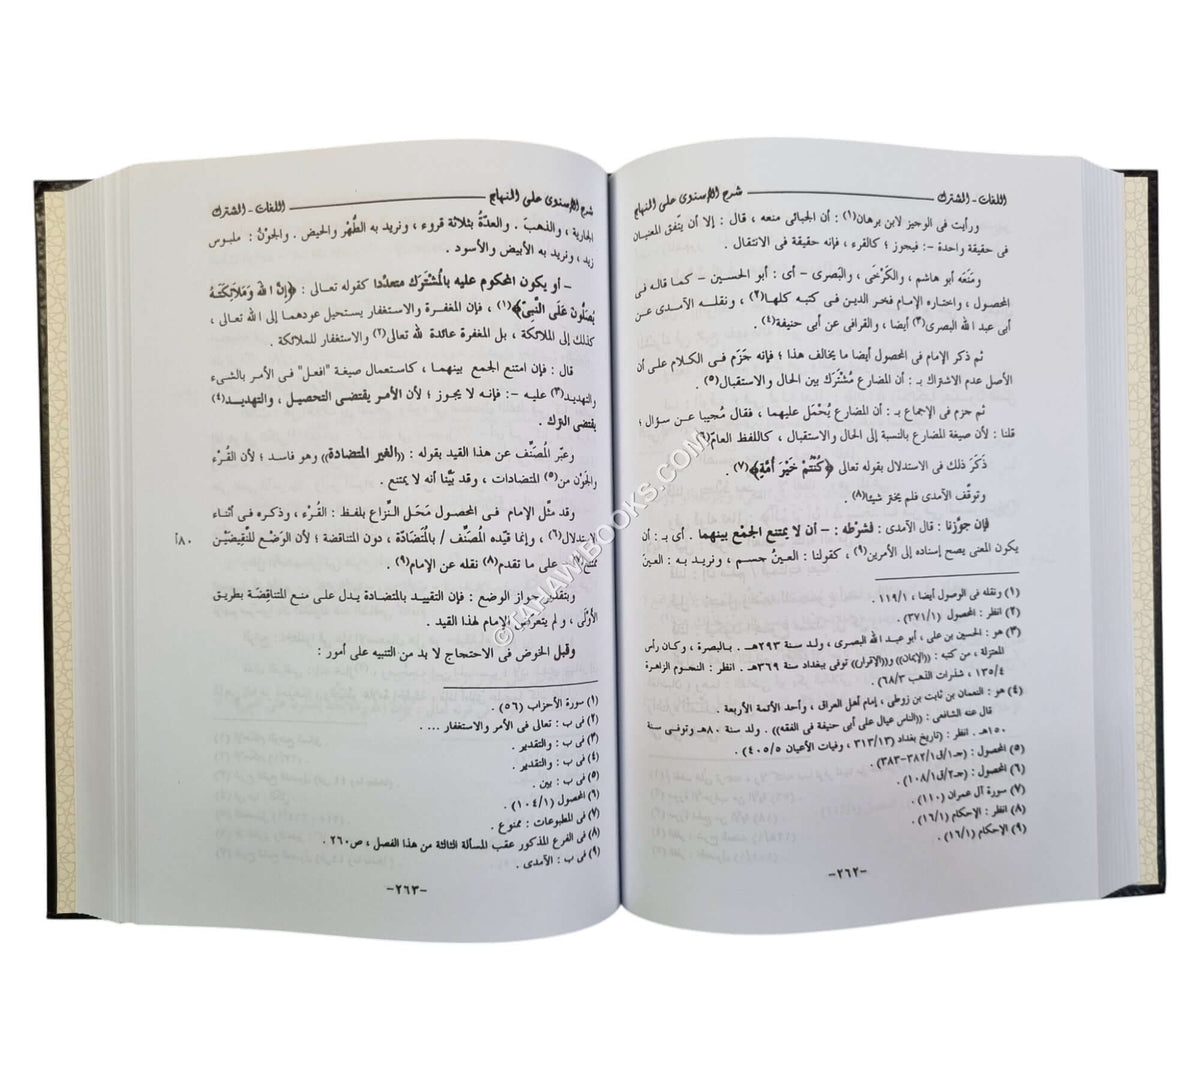 اللغات - المشترك شرح الإسنوى على المنهاج
ورأيت فى الوجيز لابن برهان(١) : أن الجبائى منعه ، قال : إلا أن يتفق المعنيان
فى حقيقة واحدة -: فيجوز ؛ كالقرء ، فإنه حقيقة فى الانتقال .
ومَنَعَه أبو هاشم ، والكَرْخَى ، والبَصرى - أى : أبو الحسين - كما قاله فى
المحصول ، واختاره الإمام فخر الدين فى كتبه كلها(٢) ، ونقله الآمدى عن
أبى عبد الله البصرى(٣) أيضا ، والقرافى عن أبى حنيفة(٤) .
ثم ذكر الإمام فى المحصول أيضا ما يخالف هذا ؛ فإنه جَزَم فى الكلام على أن
الأصل عدم الاشتراك بـ : أن المضارع مُشْتَرَك بين الحال والاستقبال(٥) .
ثم جزم فى الإجماع بـ : أن المضارع يُحْمَل عليهما ، فقال مُجيبا عن سؤال ؛
قلنا : لأن صيغة المضارع بالنسبة إلى الحال والاستقبال ، كاللفظ العامّ(٦)
ذَكَرَ ذلك فى الاستدلال بقوله تعالى ﴿كُنْتُمْ خَيْرَ أُمَّةٍ﴾(٧) .
وتوقّف الآمدى فلم يختر شيئا(٨) .
فإن جوّزنا : قال الآمدى : فشرطه : - أن لا يمتنع الجمْع بينهما . أى بـ : أن
يكون المعنى يصح إسناده إلى الأمرين(٩) ، كقولنا : العينُ جسم ، ونريد به : العينَ
(١) ونقله فى الوصول أيضا ، ١١٩/١ .
(٢) انظر : المحصول (٣٧١/١) .
(٣) هو : الحسين بن على ، أبو عبد الله البصرى ، ولد سنة ٢٩٣هـ . بـالبصرة ، وكان رأس
المعتزلة ، من كتبه : ((الإيمان)) و((الإقرار)) توفى ببغداد سنة ٣٦٩هـ . انظر : النجـوم الزاهرة
١٣٥/٤ ، شذرات الذهب ٦٨/٣)
(٤) هو : النعمان بن ثابت بن زوطى ، إمام أهل العراق ، وأحد الأئمة الأربعة .
قال عنه الشافعى : ((الناس عيال على أبى حنيفة فى الفقه)) . ولد سنة ٨٠هـ وتوفـى سنة
١٥٠هـ . انظر : (تاريخ بغداد ٣١٣/١٣ ، وفيات الأعيان ٤٠٥/٥) .
(٥) المحصول : (جـ١/ق٣٨٢/١-٣٨٣) .
(٦) المحصول : (جـ٢/ق١٠٨/١) .
(٧) سورة آل عمران (١١٠) .
(٨) انظر : الإحكام (١٦/١) .
(٩) الإحكام (١٦/١) .
-٢٦٢-
شرح الإسنوى على المنهاج اللغات - المشترك
الجارية ، والذهبَ . والعدّةُ بثلاثة قروء ، ونريد به الطُّهْر والحيض . والجوْنُ : ملبوس
زيد ، ونريد به الأبيض والأسود .
- أو يكون المحكوم عليه بالْمُشْتَرَك متعددًا كقوله تعالى : ﴿إنَّ اللهَ وَمَلاَئكَتَهُ
يُصَلُّون عَلَى النَّبىّ﴾(١) ، فإن المغفرة والاستغفار يستحيل عودهمـا إلى الله تعالى ،
كذلك إلى الملائكة ، بل المغفرة عائدة لله تعالى(٢) والاستغفار للملائكة .
قال : فإن امتنع الجمع بينهما ، كاستعمال صيغة "افعل" فى الأمـر بالشىء
والتهديد(٣) عليه -: فإنه لا يجوز ؛ لأن الأمـر يقتضى التحصيل ، والتهديد(٤)
يقتضى الترك .
وعبّر الْمُصنِّف عن هذا القيد بقوله : ((الغير المتضادة)) وهو فاسد ؛ لأن القُرْء
والجَوْن من(٥) المتضادات ، وقد بيَّنا أنه لا يمتنع .
وقد مثّل الإمام فى المحصول مَحَل النِّزاع بلفظ : القُرْء ، وذكره فى أثناء
الاستدلال(٦) ، وإنما قيّده الْمُصنِّف / بالْمُتَضَادّة ، دون المتناقضة ؛ لأن الوَضْع للنَّقِيضَيْن ٨٠أ
ممتنع(٧) على ما تقدم(٨) نقله عن الإمام(٩) .
وبتقدير جواز الوضع : فإن التقييد بالمتضادة يدل على منع المتناقِضَة بطريق
الأَوْلَى ، ولم يتعرض الإمام لهذا القيد .
وقبل الخوض فى الاحتجاج لا بد من التنبيه على أمور :
(١) سورة الأحزاب (٥٦) .
(٢) فى ب : تعالى فى الأمر والاستغفار ... .
(٣) فى ب : والتقدير .
(٤) فى ب : والتقدير .
(٥) فى ب : بين .
(٦) المحصول (١٠٤/١) .
(٧) فى المطبوعات : ممنوع .
(٨) فى الفرع المذكور عقب المسألة الثالثة من هذا الفصل ، ص٢٦٠ .
(٩) فى ب : الآمدى .
-٢٦٣-
© TAHAWIBOOKS.COM